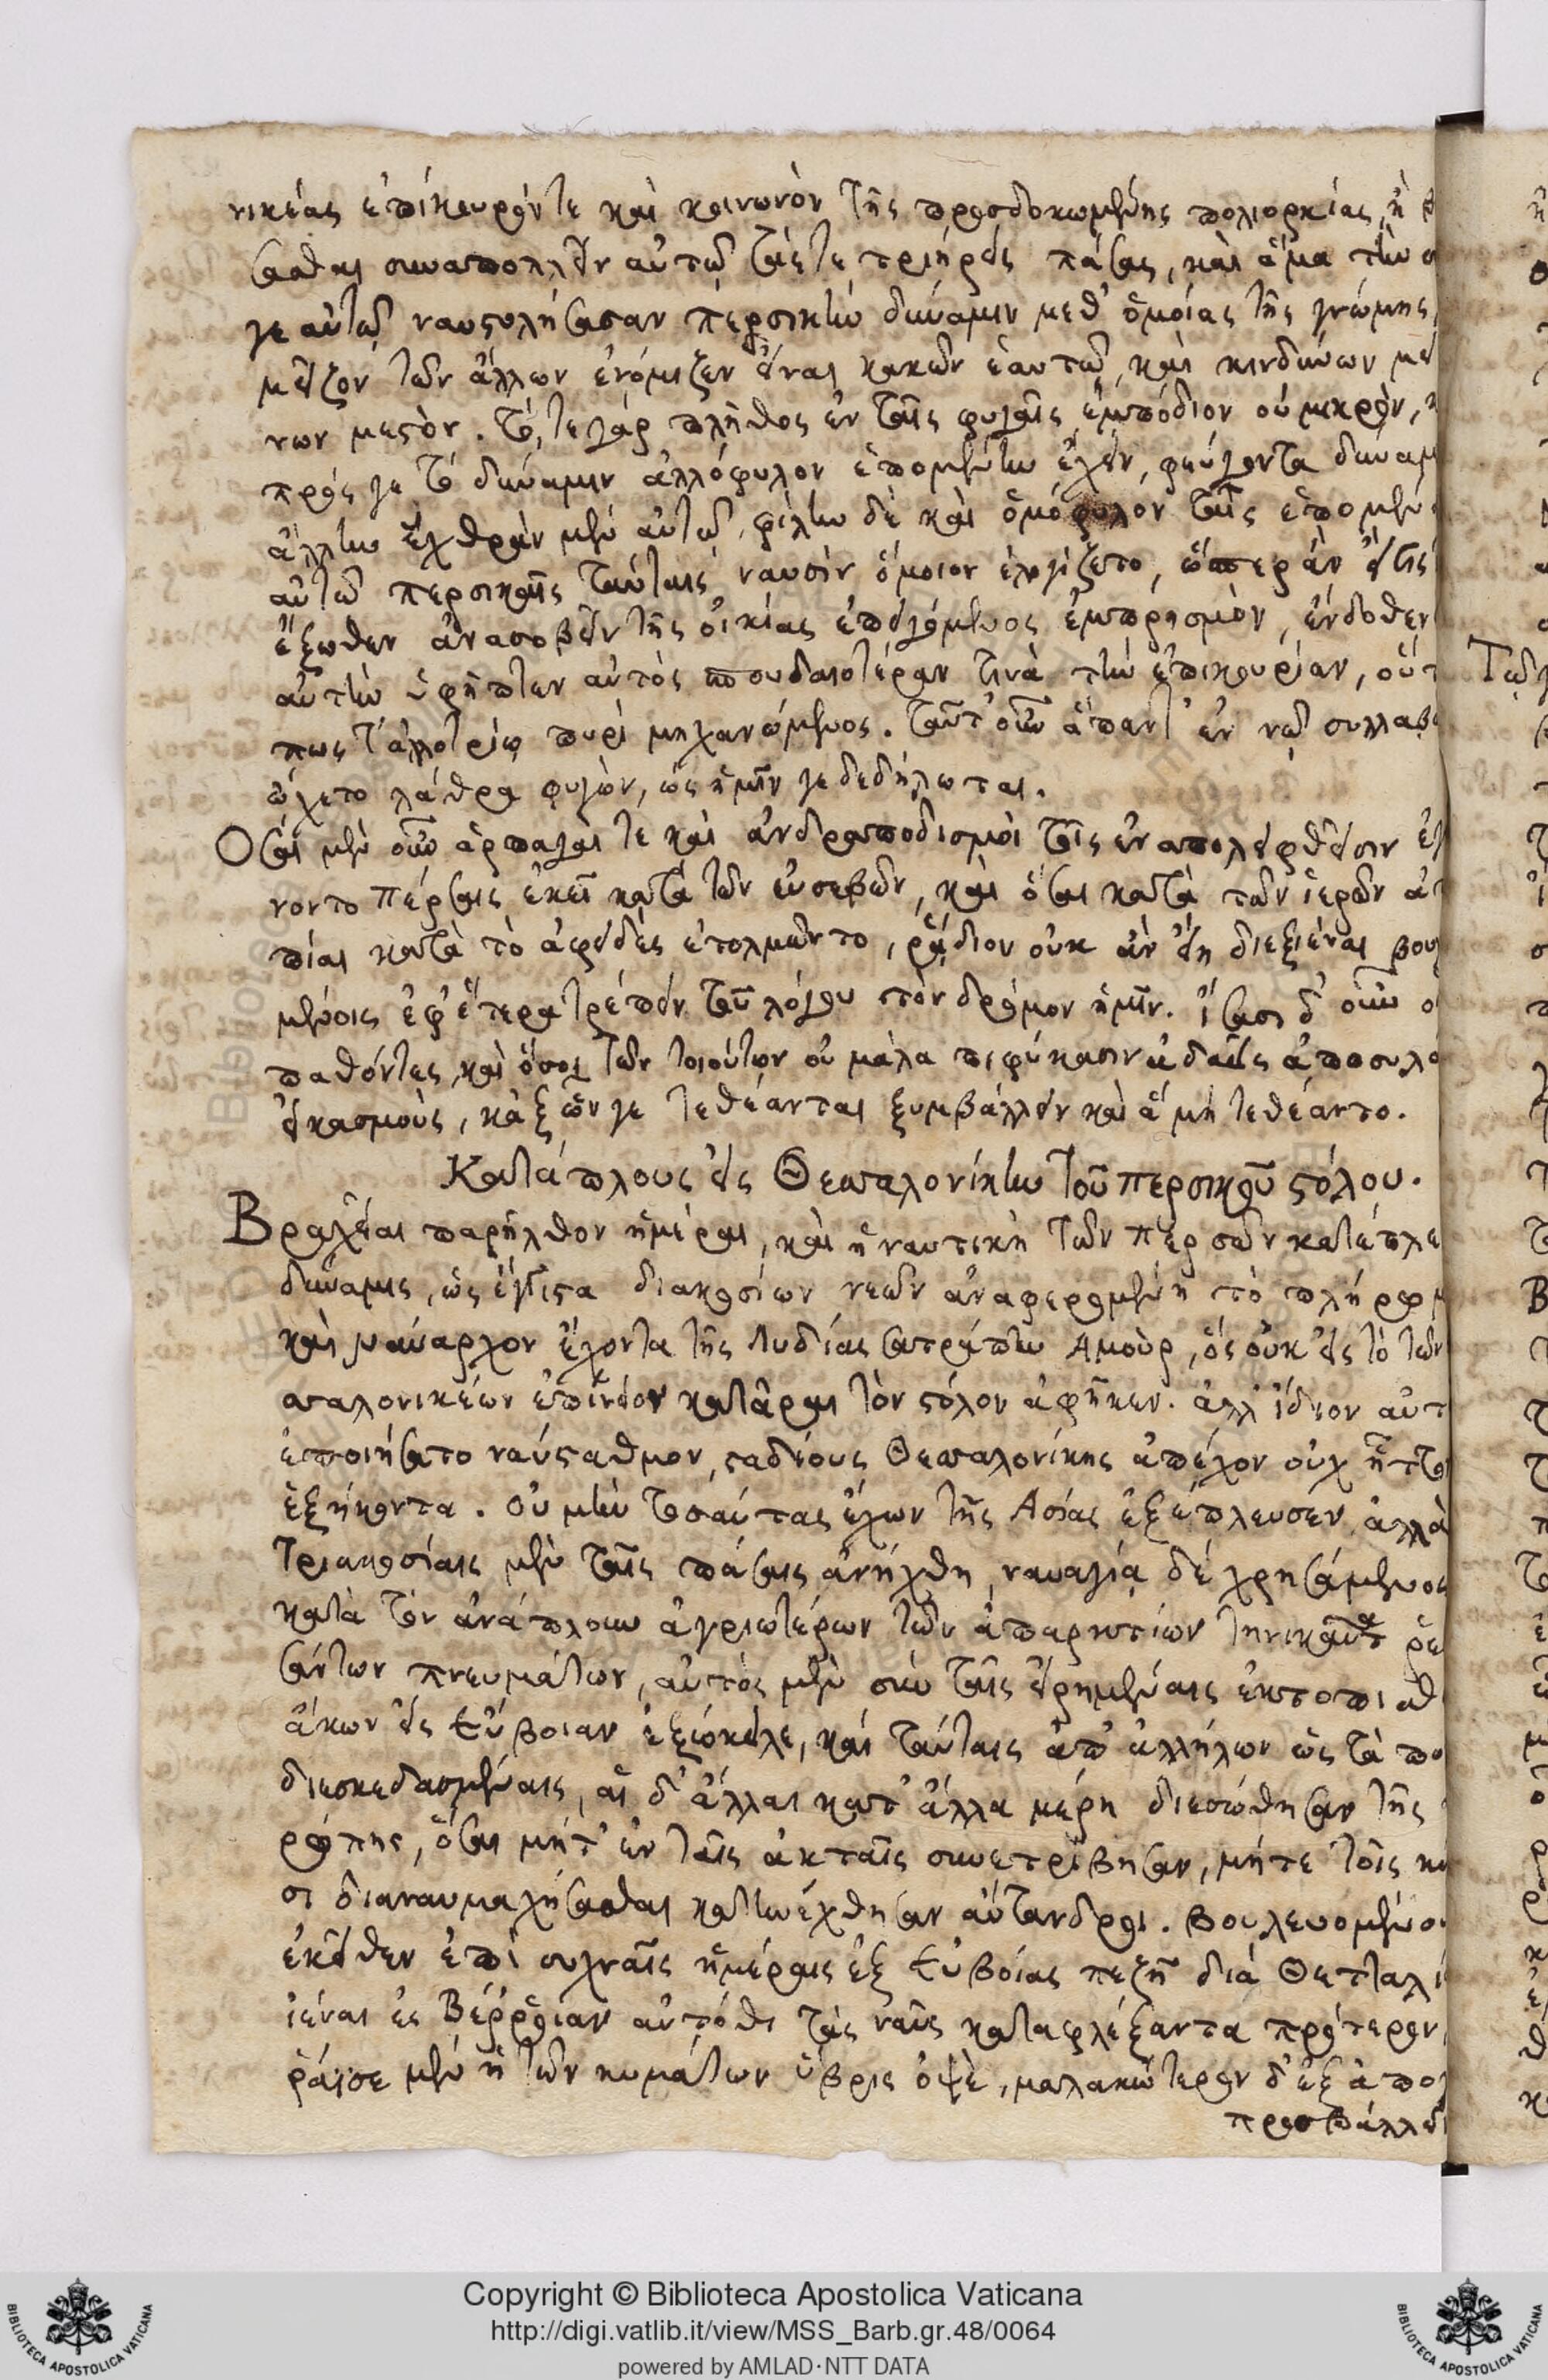 νικέας ἐπίκουρόν τε καὶ κοινωνὸν τῆς προσδοκωμένης πολιορκίας, ἢ
σασθαι συναποπλεῖν αὐτῷ τάς τε τριήρεις πάσας, καὶ ἅμα τὴν
γε αὐτῷ ναυστολήσασαν περσικὴν δύναμιν μεθ' ὁμοίας τῆς γνώμης,
μεῖζον τῶν ἄλλων ἐνόμιζεν εἶναι κακῶν ἑαυτῷ, καὶ κινδύνων
νων μεστόν. τό, τε γὰρ πλῆθος ἐν ταῖς φυγαῖς, ἐμπόδιον οὐ μικρὸν,
πρός γε τὸ δύναμιν ἀλλόφυλον ἑπομένην ἔχειν, φεύγοντα
ἄλλην ἐχθρὰν μὲν αὐτῷ, φίλην δὲ καὶ ὁμόφυλον ταῖς
αὐτῷ περσικαῖς ταύταις ναυσὶν ὅμοιον ἐλογίζετο, ὥσπερ ἂν εἴ τις
ἔξωθεν ἀνασοβεῖν τῆς οἰκίας ἐπειγόμενος ἐμπρησμὸν, ἔνδοθεν
αὐτὴν ὑφῆπτεν αὐτὸς σπουδαιοτέραν τινὰ τὴν ἐπικουρίαν,
πως τἀλλοτρίῳ πυρὶ μηχανώμενος. ταῦτ' οὖν ἅπαντ' ἐν νῷ
ᾤχετο λάθρα φυγὼν, ὡς ἡμῖν γε δεδήλωται.
Ὅσαι μὲν οὖν ἁρπαγαί τε καὶ ἀνδραποδισμοὶ τοῖς ἐναπολειφθεῖσιν
νοντο πέρσαις ἐκεῖ κατὰ τῶν εὐσεβῶν, καὶ ὅσαι κατὰ τῶν ἱερῶν
πίαι κατὰ τὸ ἀφειδὲς ἐτολμῶντο, ῥᾴδιον οὐκ ἂν εἴη διεξιέναι
μένοις ἐφ' ἕτερα τρέπειν τοῦ λόγου τὸν δρόμον ἡμῖν. ἴσασι δ' οὖν
παθόντες, καὶ ὅσοι τῶν τοιούτων οὐ μάλα πεφύκασιν ἀδαεῖς
εἰκασμοὺς, κἀξ ὧν γε τεθέανται ξυμβάλλειν καὶ ἃ μὴ τεθέαντο.
Κατάπλους εἰς Θεσσαλονίκην τοῦ περσικοῦ στόλου.
Βραχεῖαι παρῆλθον ἡμέραι, καὶ ἡ ναυτικὴ τῶν περσῶν
δύναμις, ὡς ἔγγιστα διακοσίων νεῶν ἀναφερομένη τὸ
καὶ ναύαρχον ἔχοντα τῆς Λυδίας σατράπην Ἀμοὺρ, ὃς οὐκ εἰς τὸ τῶν
σσαλονικέων ἐπίνειον κατᾶραι τὸν στόλον ἀφῆκεν. ἀλλ' ἴδιον
ἐποιήσατο ναύσταθμον, σταδίους Θεσσαλονίκης ἀπέχον οὐχ
ἑξήκοντα. οὐ μὴν τοσαύτας ἔχων τῆς Ἀσίας ἐξέπλευσεν, ἀλλὰ
τριακοσίαις μὲν ταῖς πάσαις ἀνήχθη, ναυαγίᾳ δὲ χρησάμενος
κατὰ τὸν ἀνάπλουν ἀγριωτέρων τῶν ἀπαρκτίων τηνικαῦτα
σάντων πνευμάτων, αὐτὸς μὲν σὺν ταῖς εἰρημέναις
ἄκων εἰς Εὔβοιαν ἐξώκειλε, καὶ ταύταις ἀπ' ἀλλήλων ὡς τὰ
διεσκεδασμέναις, αἱ δ' ἄλλαι κατ' ἄλλα μέρη διεσώθησαν τῆς
ρώπης, ὅσαι μήτ' ἐν ταῖς ἀκταῖς συνετρίβησαν, μήτε τοῖς
σι διαναυμαχήσασθαι κατηνέχθησαν αὔτανδροι.
ἐκεῖθεν ἐπὶ συχναῖς ἡμέραις ἐξ Εὐβοίας πεζῇ διὰ
ἰέναι ἐς Βέῤῥοιαν αὐτόθι τὰς ναῦς καταφλέξαντα πρότερον
ῥάϊσε μὲν ἡ τῶν κυμάτων ὕβρις ὀψὲ, μαλακώτερον δ' ἐξ
προσβάλλει
Copyright © Biblioteca Apostolica Vaticana
http://digi.vatlib.it/view/MSS_Barb.gr.48/0064
powered by AMLAD·NTT DATA
BIBLIOTECA APOSTOLICA VATICANA
BIBLIOTECA APOSTOLICA VATICANA